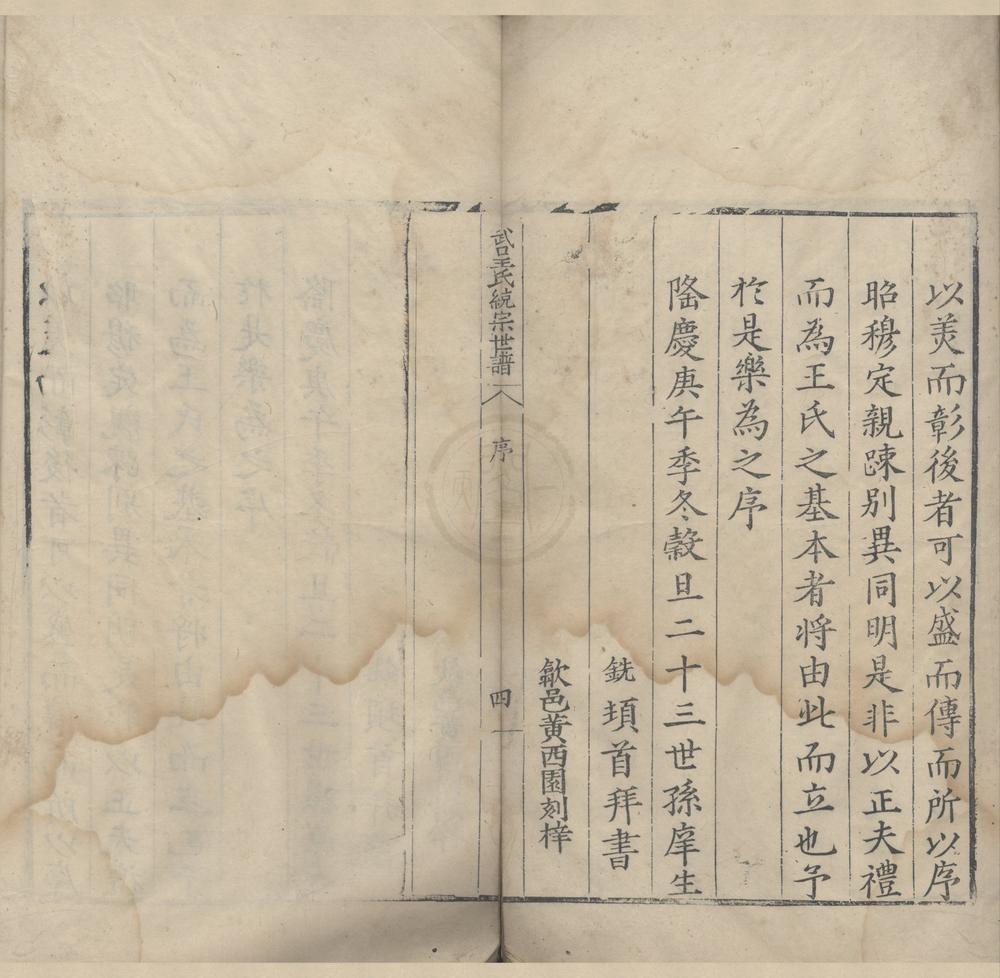 以羙而彰後者可以盛而傳而所以序
昭穆定親踈別異同明是非以正夫禮
而為王氏之基本者將由此而立也予
於是樂為之序
隆慶庚午季冬穀旦二十三世孫庠生
銑頓首拜書
歙邑黃西園刻梓
武口王氏統宗世譜
序
四